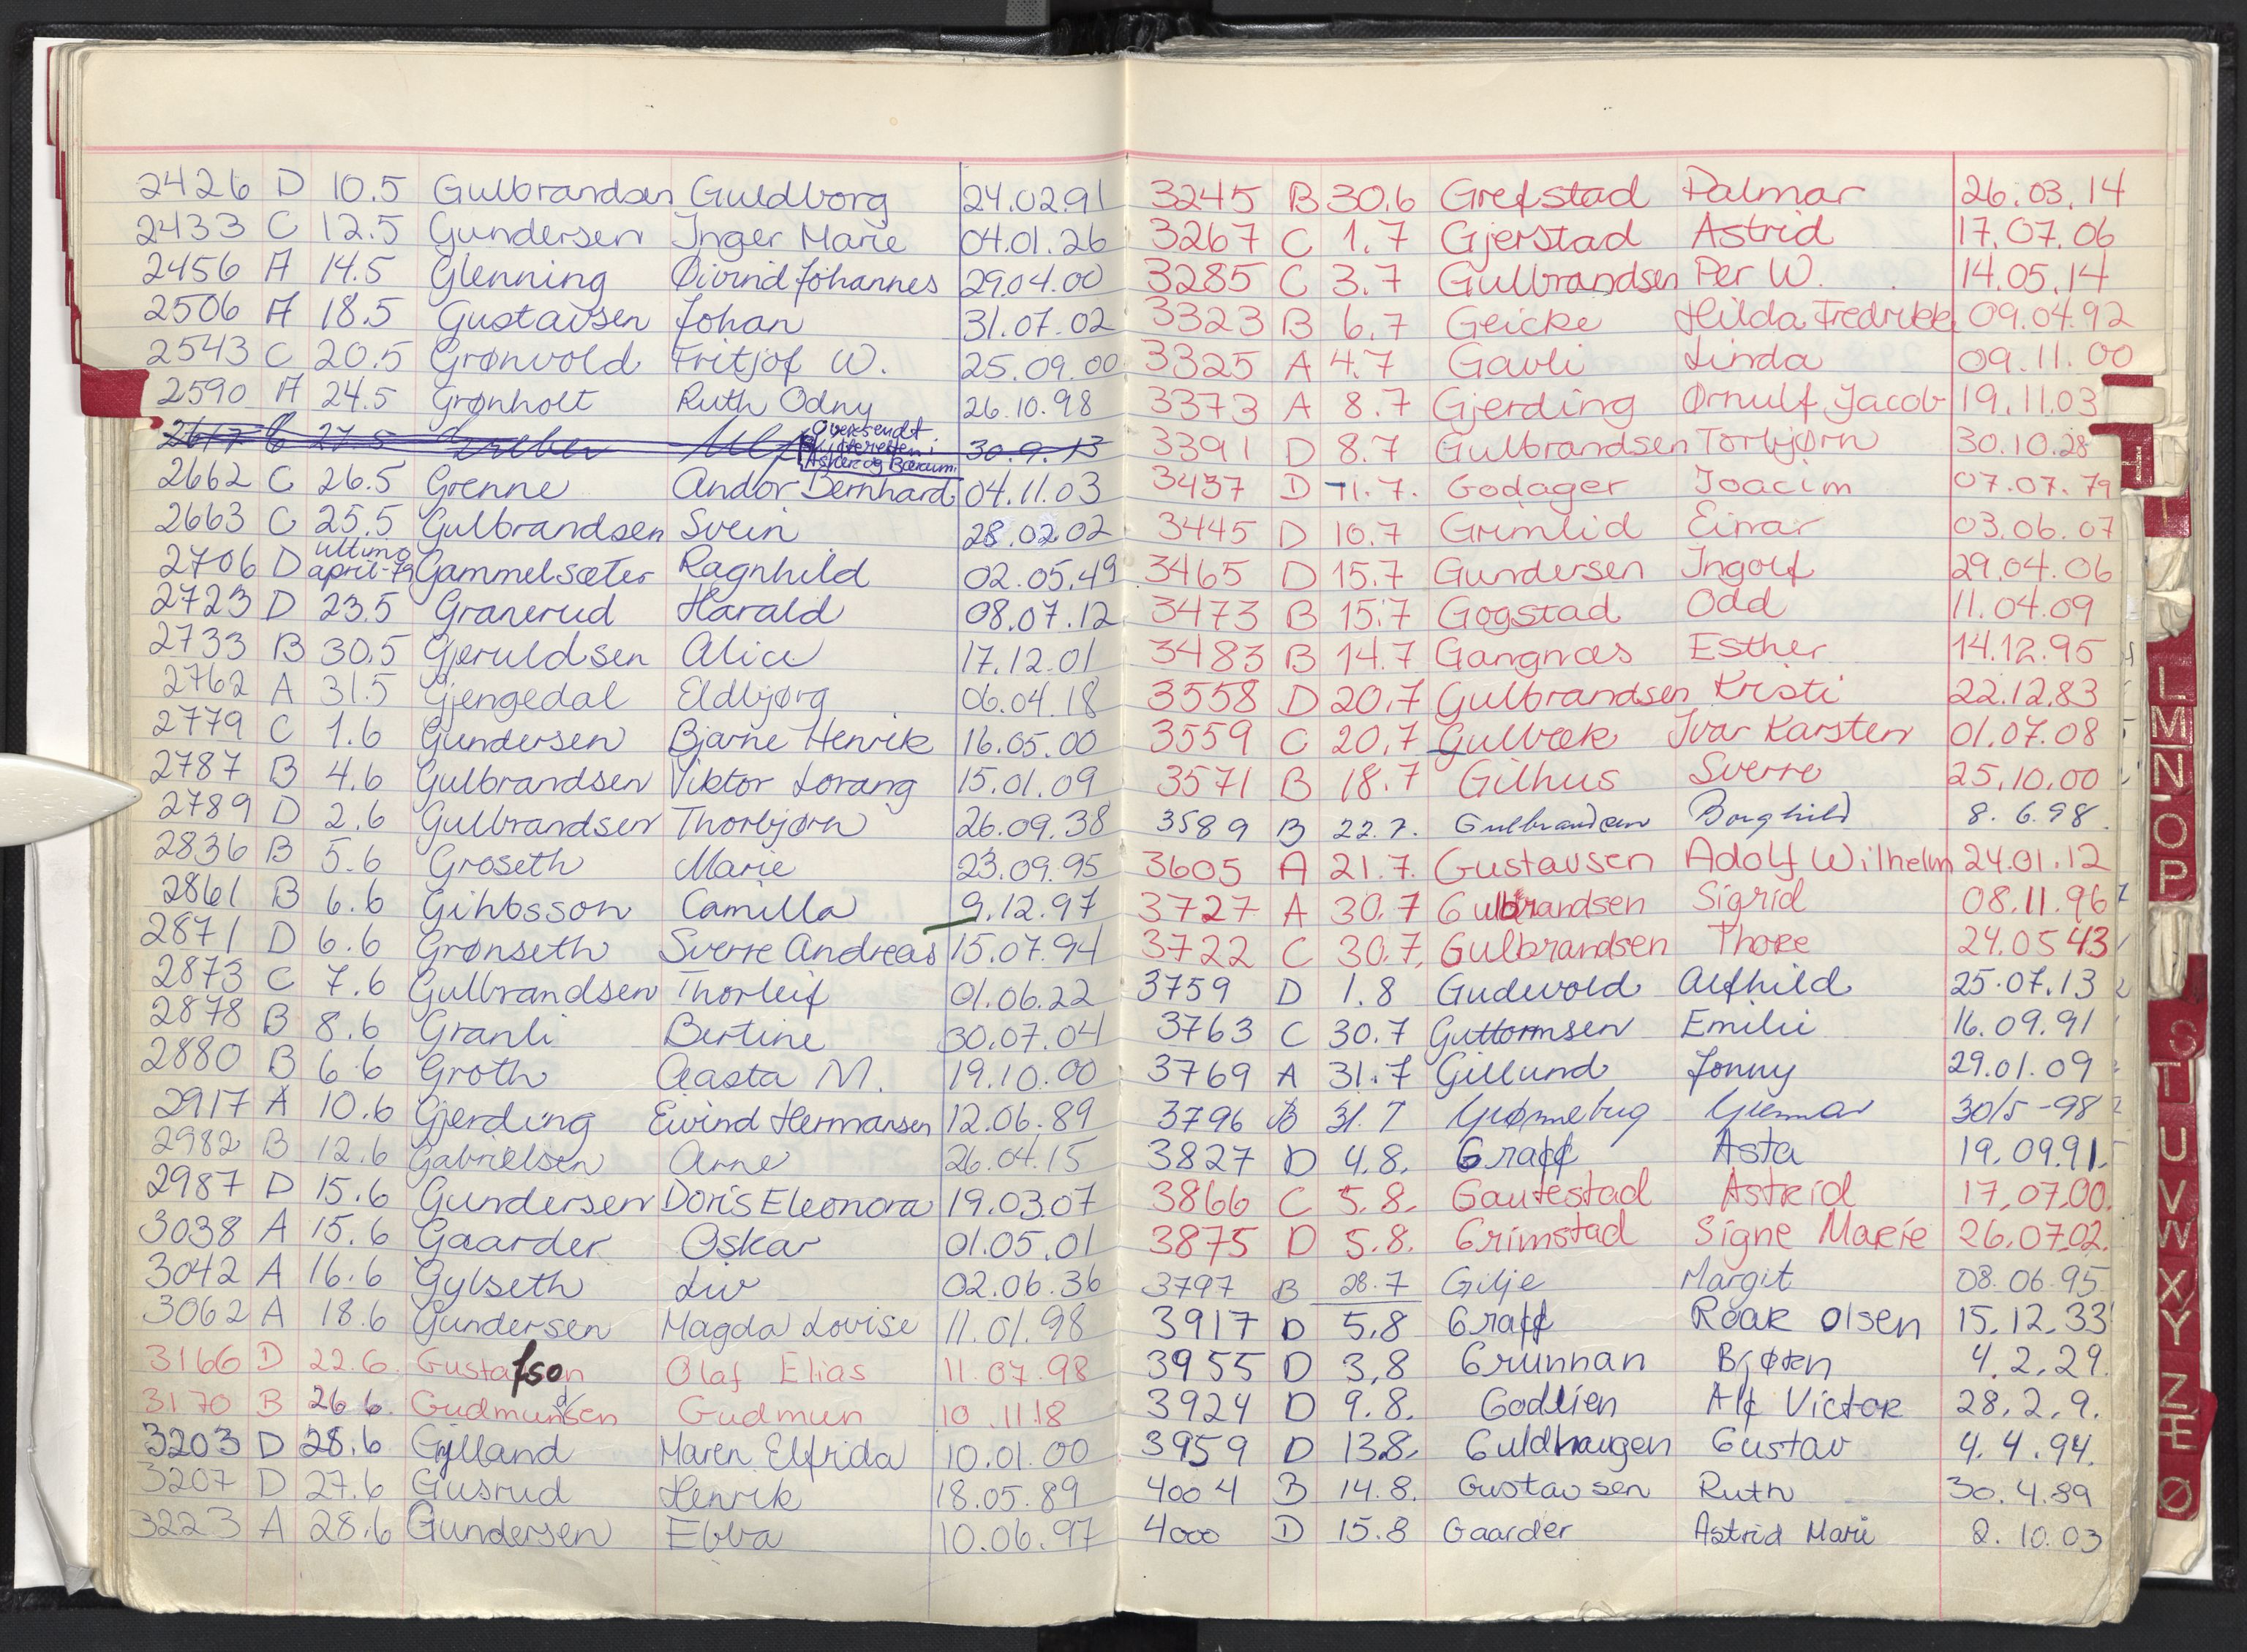 2426 D 10.5 Gulbrandsen Guldborg 24.02.91
2433 C 12.5 Gundersen Inger Marie 04.01.26
2456 A 14.5 Glenning Øivind Johannes 29.04.00
2506 A 18.5 Gustavsen Johan 31.07.02
2543 C 20.5 Grønvold Fritjof W. 25.09.00
2590 A 24.5 Grønholt Ruth Odny 26.10.98
2617 C 27.5 30.9.13
Oversendt
Skifteretten i
Asker og Bærum
2662 C 26.5 Grenne Andor Bernhard 04.11.03
2663 C 25.5 Gulbrandsen Svein 28.02.02
2706 D ultimo april-79 Gammelsæter Ragnhild 02.05.49
2723 D 23.5 Granerud Harald 08.07.12
2733 B 30.5 Gjeruldsen Alice 17.12.01
2762 A 31.5 Gjengedal Eldbjørg 06.04.18
2779 C 1.6 Gundersen Bjarne Henrik 16.05.00
2787 B 4.6 Gulbrandsen Viktor Lorang 15.01.09
2789 D 2.6 Gulbrandsen Thorbjørn 26.09.38
2836 B 5.6 Groseth Marie 23.09.95
2861 B 6.6 Gihbsson Camilla 9.12.97
2871 D 6.6 Grønseth Sverre Andreas 15.07.94
2873 C 7.6 Gulbrandsen Thorleif 01.06.22
2878 B 8.6 Granli Bertine 30.07.04
2880 B 6.6 Groth Aasta M. 19.10.00
2917 A 10.6 Gjerding Eivind Hermansen 12.06.89
2982 B 12.6 Gabrielsen Arne 26.04.15
2987 D 15.6 Gundersen Doris Eleonora 19.03.07
3038 A 15.6 Gaarder Oskar 01.05.01
3042 A 16.6 Gylseth Liv 02.06.36
3062 A 18.6 Gundersen Magda Lovise 11.01.98
3166 D 22.6. Gustafson Olaf Elias 11.07.98
3170 B 26 6. Gudmundsen Gudmun 10.11 18
3203 D 28.6 Gylland Maren Elfrida 10.01.00
3207 D 27.6 Gusrud Henrik 18.05.89
3223 A 28.6 Gundersen Ebba 10.06.97
3245 B 30.6 Grefstad Palmar 26.03.14
3267 C 1.7 Gjerstad Astrid 17.07.06
3285 C 3.7 Gulbrandsen Per W. 14.05.14
3323 B 6.7 Geicke Hilda Fredrikke 09.04.92
3325 A 4.7 Gavli Linda 09.11.00
3373 A 8.7 Gjerding Ørnulf Jacob 19.11.03
3391 D 8.7 Gulbrandsen Torbjørn 30.10.28
3437 D 11.7. Godager Joacim 07.07.79
3445 D 10.7 Grimlid Einar 03.06.07
3465 D 15.7 Gundersen Ingolf 29.04.06
3473 B 15.7 Gogstad Odd 11.04.09
3483 B 14.7 Gangnæs Esther 14.12.95
3558 D 20.7 Gulbrandsen Kristi 22.12.83
3559 C 20.7 Gulbæk Ivar Karsten 01.07.08
3571 B 18.7 Gilhus Sverre 25.10.00
3589 B 22.7. Gulbrandsen Borghild 8.6.98.
3605 A 21.7. Gustavsen Adolf Wilhelm 24.01.12
3727 A 30.7 Gulbrandsen Sigrid 08.11.96
3722 C 30.7. Gulbrandsen Thore 24.05 43
3759 D 1.8 Gudevold Alfhild 25.07.13
3763 C 30.7 Guttormsen Emilie 16.09.91
3769 A 31.7 Gillund Jonny 29.01.09
3796 B 31.7 Gunnar 30/5-98
3827 D 4.8. Graff Asta 19.09.91.
3866 C 5.8. Gautestad Astrid 17.07.00.
3875 D 5.8. Grimstad Signe Marie 26.07.02.
3797 B 28.7 Gilje Margit 08.06.95
3917 D 5.8 Graff Roar Olsen 15.12.33
3955 D 3.8 Grunnan Bjørn 4.2.29.
3924 D 9.8. Godlien Alf Victor 28.2.9.
3959 D 13.8. Guldhaugen Gustav 4.4.94.
4004 B 14.8. Gustavsen Ruth 30.4.89
4000 D 15.8 Gaarder Astrid Marie 2.10.03
H
I
L
M
N
O
P
S
T
U
V
W
X
Y
Z
Æ
Ø